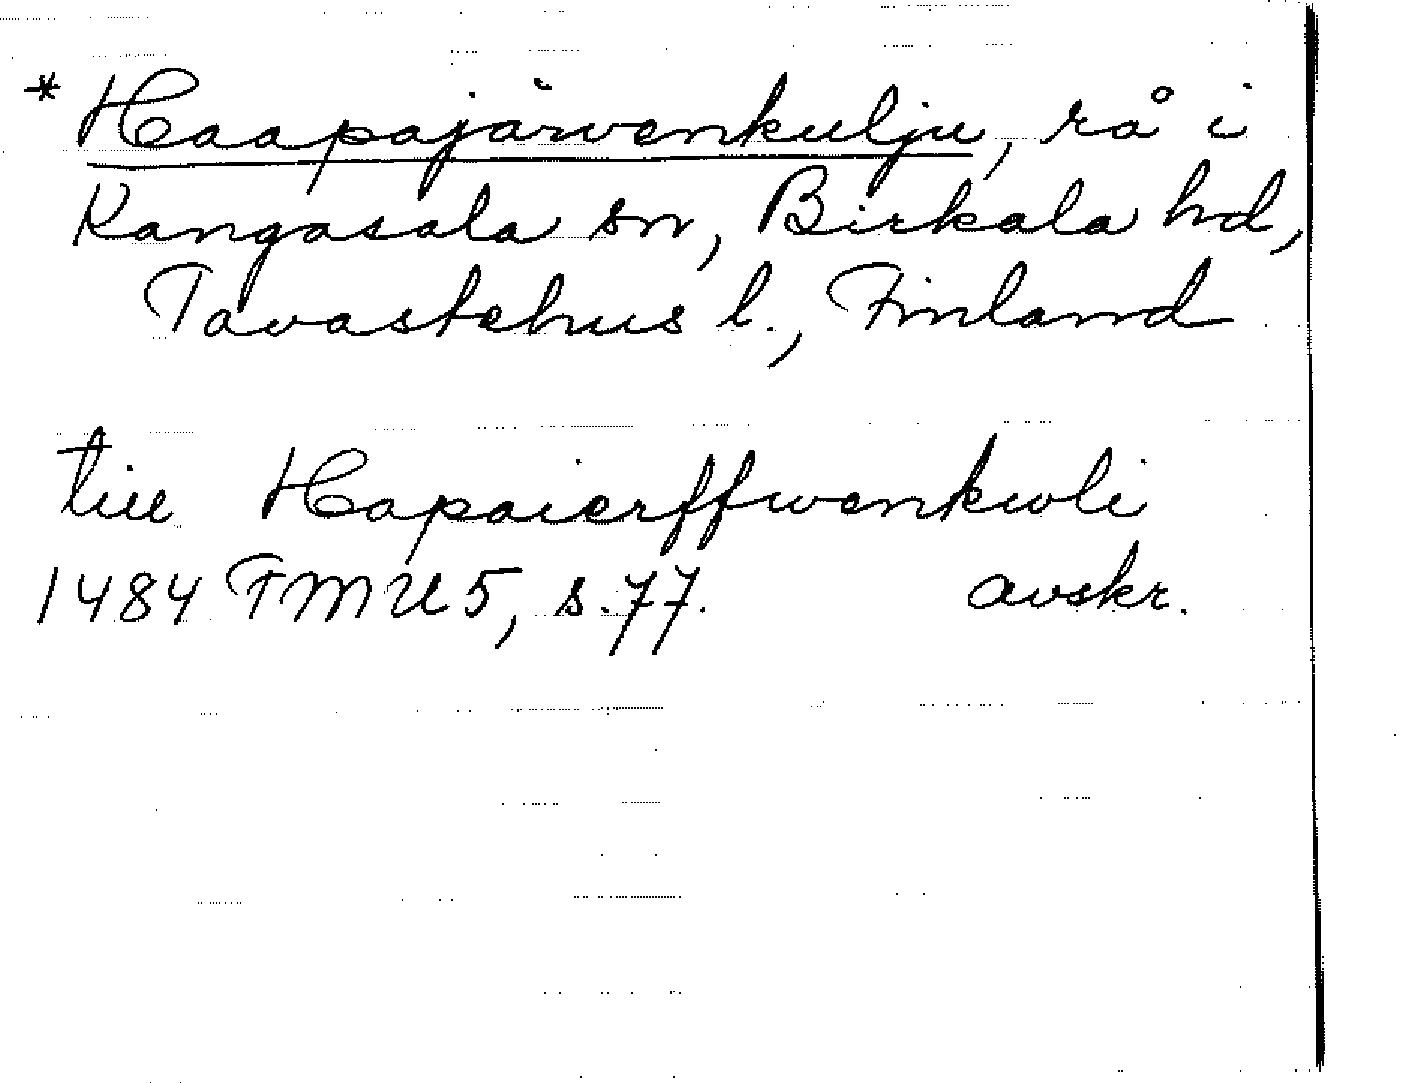 * Haapajärvenkulju, rå i
Kangasala sn, Birkala hd,
Tavastehus l., Finland
till Hapaierffwenkwli
1484 FMU 5, s. 77. avskr.